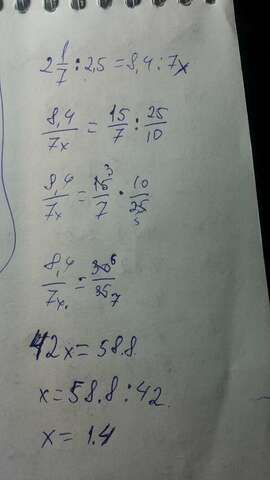 2 1/7 : 2,5 = 8,4 : 7x
8,4/7x = 15/7 : 25/10
8,4/7x = 15 3/7 · 10/25 5
8,4/7x = 30 6/35 7
42x = 58.8
x = 58.8 : 42
x = 1.4